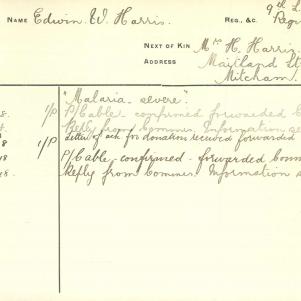 NAME Edwin W. Harris. REG., &C. 9th L
Regi
NEXT OF KIN Mrs H. Harris
ADDRESS Maitland St
Mitcham.
"Malaria - severe".
8. 1/P P/Cable confirmed forwarded C
Reply from Commrs. Information se
8 Letter of ack for donation received forwarded
18 1/P P/Cable, confirmed - forwarded Comm
18. Reply from Commrs. Information s